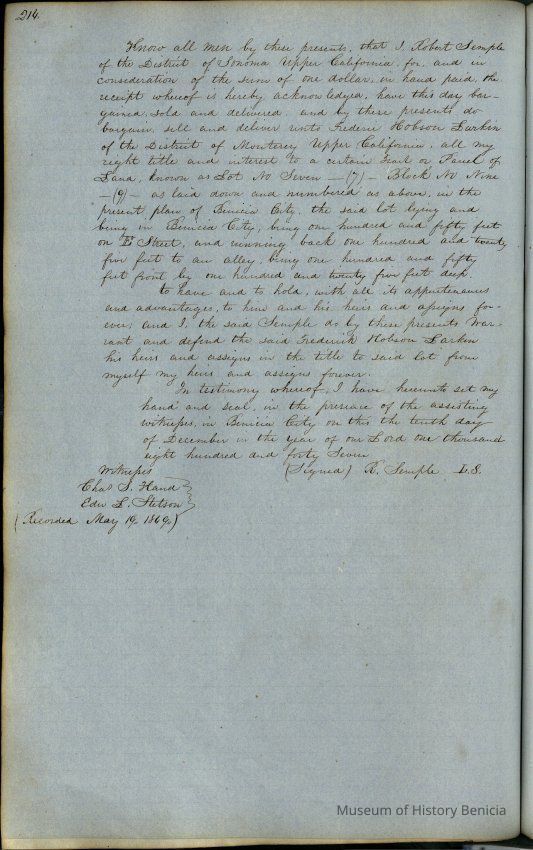 214.
Know all men by these presents, that I, Robert Semple
of the District of Sonoma Upper California, for, and in
consideration of the sum of one dollar, in hand paid, the
receipt whereof is hereby acknowledged, have this day bar-
gained, sold and delivered, and by these presents do
bargain, sell and deliver unto Frederic Hobson Larkin
of the District of Monterey Upper California, all my
right title and interest to a certain Tract or Parcel of
Land, known as Lot No Seven — (7) — Block No Nine
— (9) — as laid down and numbered as above, in the
present plan of Benicia City, the said lot lying and
being in Benicia City, being one hundred and fifty feet
on E Street, and running back one hundred and twenty
five feet to an alley, being one hundred and fifty
feet front by one hundred and twenty five feet deep.
to have and to hold, with all its appurtenances
and advantages, to him and his heirs and assigns for-
ever; and I, the said Semple do by these presents War-
rant and defend the said Frederick Hobson Larkin
his heirs and assigns in the title to said lot from
myself my heirs and assigns forever.
In testimony whereof, I have hereunto set my
hand and seal, in the presence of the assisting
witnesses, in Benicia City on this the tenth day
of December in the year of our Lord one thousand
eight hundred and forty Seven
Witnesses (Signed) R. Semple L.S.
Chas S. Hand
Edw L. Stetson
(Recorded May 19, 1869,)
Museum of History Benicia